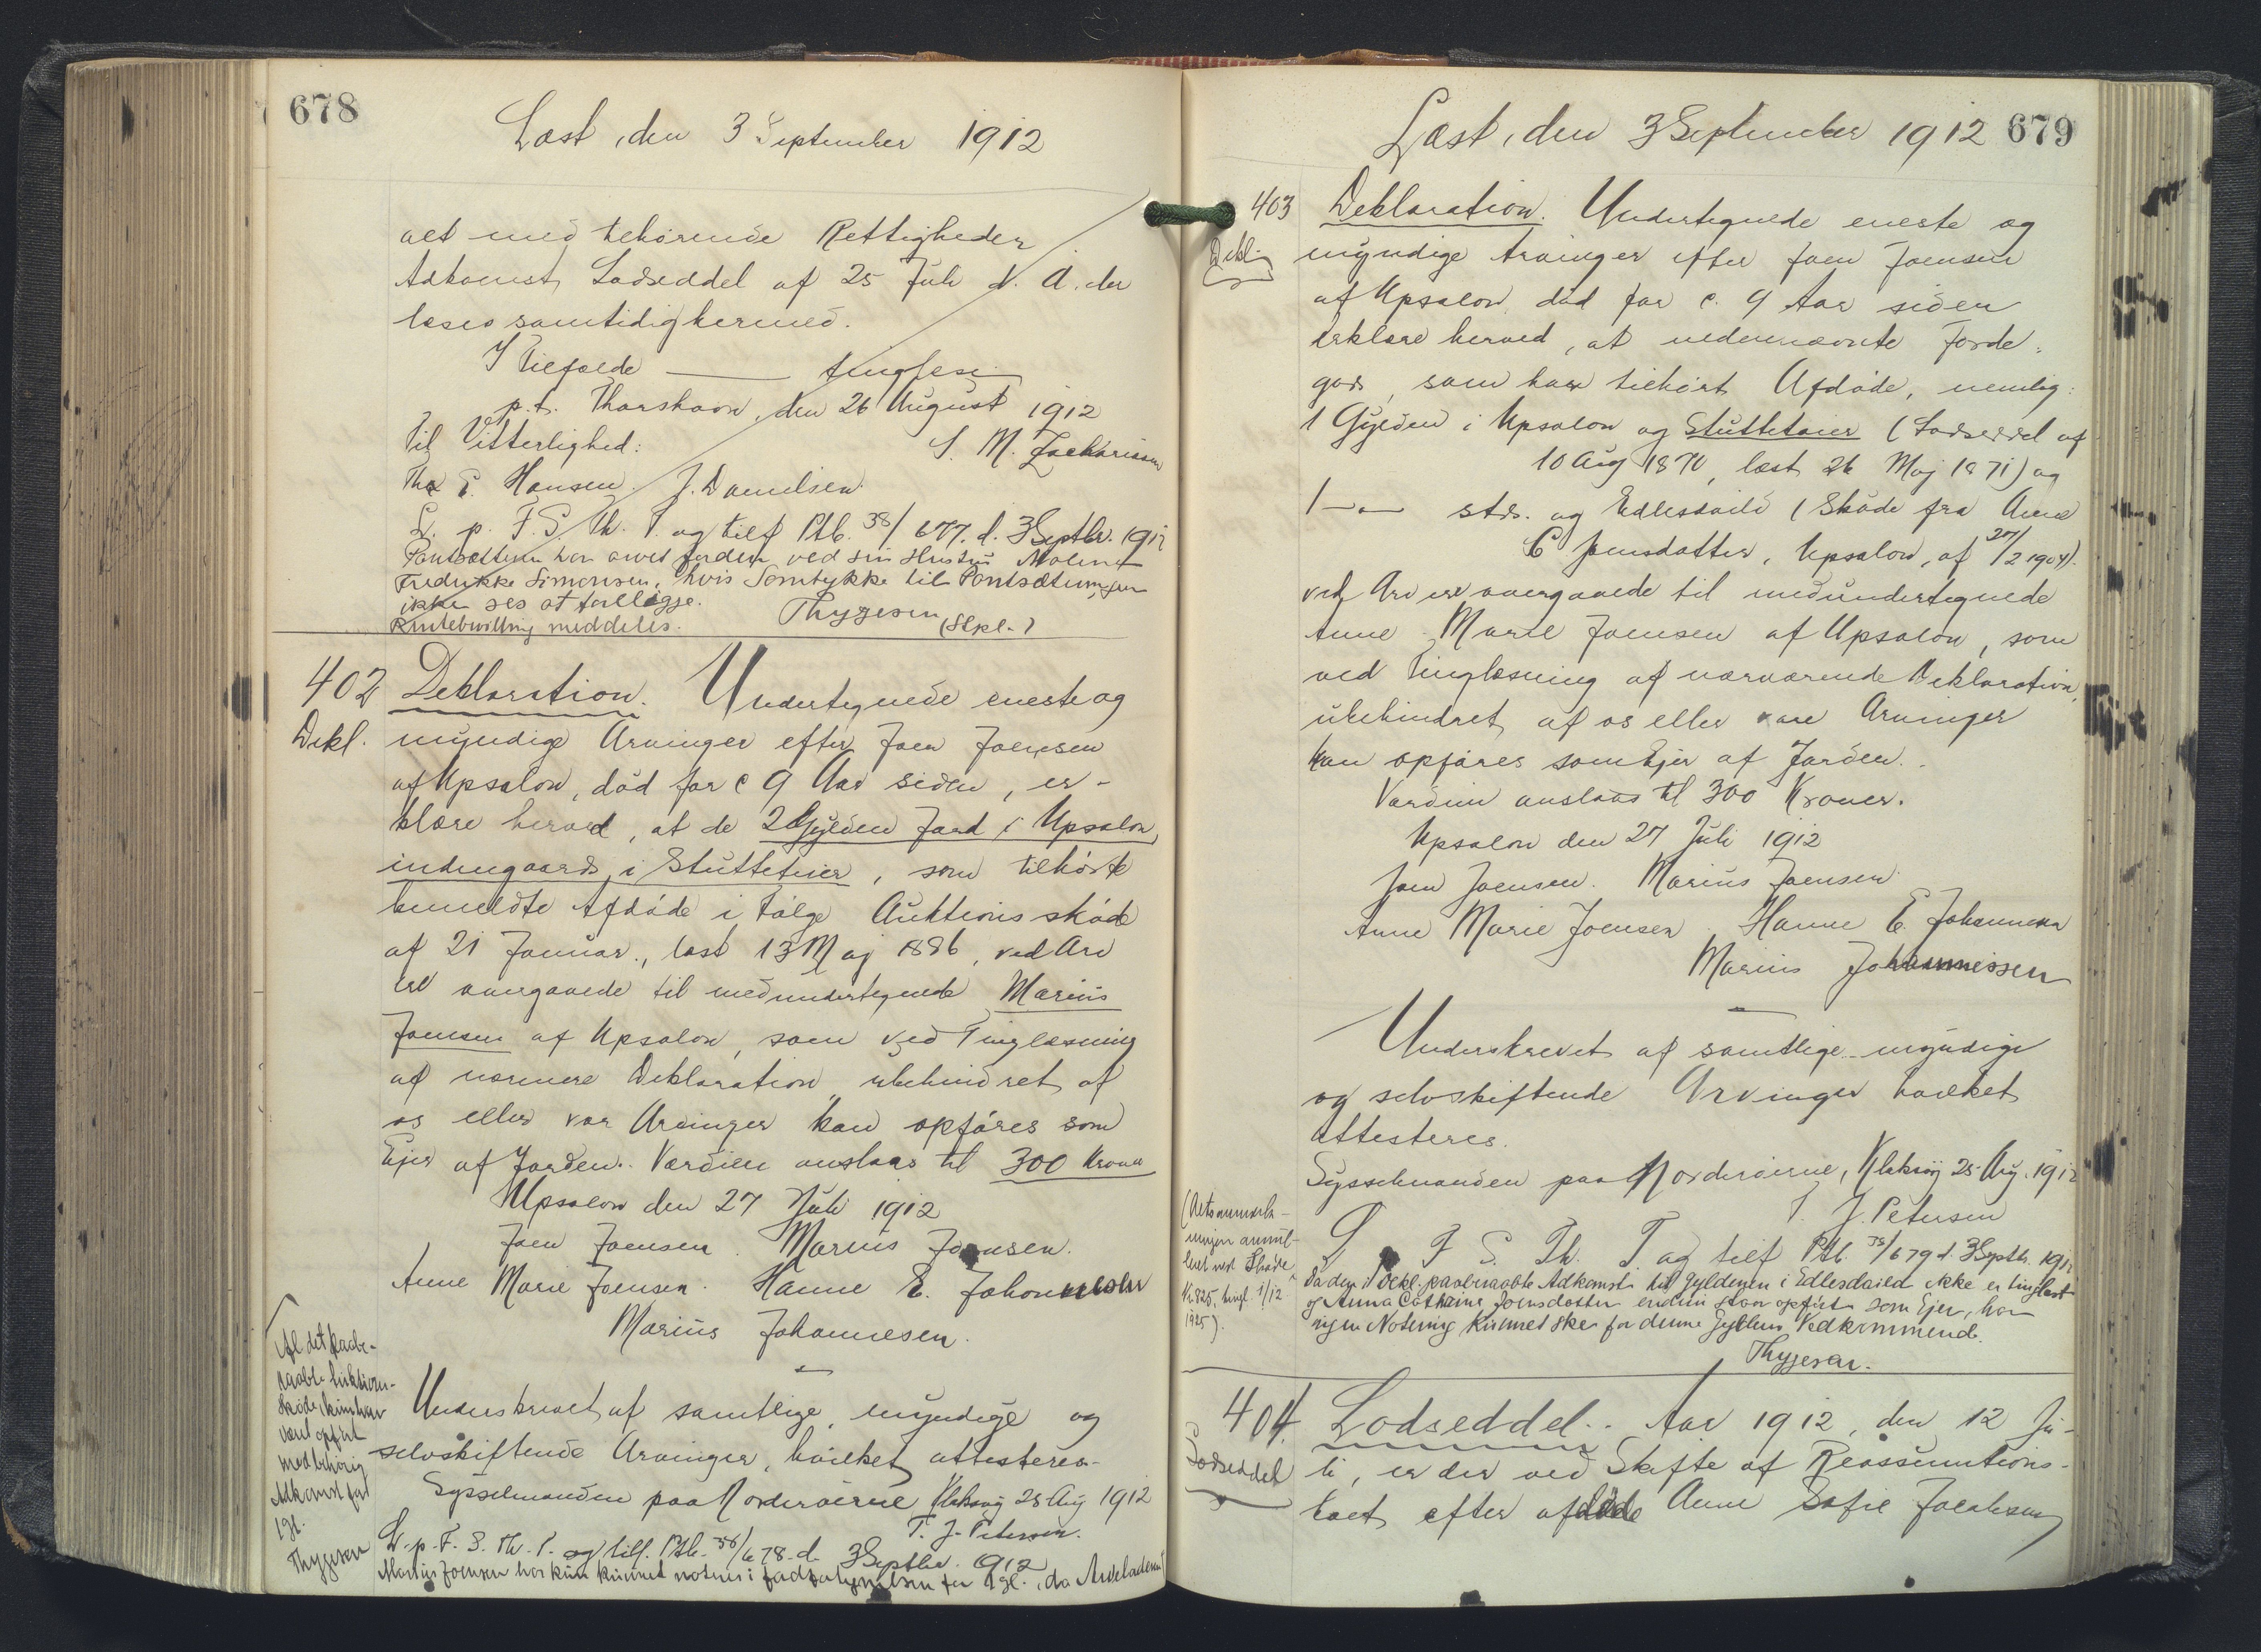 678
Læst, den 3 September 1912
alt med tilhørende Rettigheder
Adkomst, Lodseddel af 25 Juli d. A. der
læses samtidig hermed.
I Tilfælde — tinglæse
p.t. Thorshavn, den 26 August 1912
Til Vitterlighed: S. M. Zachariasen
E. Hansen. J. Danielsen
L. p. F. S. Th. T. og tilf Ptb. 38/677. d. 3 Septbr. 1912
Pantsætteren har arvet Jorden ved sin Hustru Malene
Fredrikke Simonsen, hvis Samtykke til Pantsætningen
ikke ses at foreligge.
Rentebevilling meddeles. Thygesen (Stpl.)
402 Deklaration. Undertegnede eneste og
Dekl. myndige Arvinger efter Joen Joensen
af Upsalon, død for c 9 Aar siden, er-
klære herved, at de 2 Gylden Jord i Upsalon,
indengaards, i Stutteteier, som tilhørte
bemeldte Afdøde i Følge Auktionsskøde
af 21 Januar, læst 13 Maj 1886, ved Arv
ere overgaaede til medundertegnede Marius
Joensen af Upsalon, som ved Tinglæsning
af nærværende Deklaration, ubehindret af
os eller vor Arvinger kan opføres som
Ejer af Jorden. Værdien anslaas til 300 Kroner
Upsalon den 27 Juli 1912
Joen Joensen. Marius Joensen.
Anne Marie Joensen. Hanne E. Johannesen
Marius Johannesen.
Underskrevet af samtlige, myndige og
selvskiftende Arvinger, hvilket attesteres.
Sysselmanden paa Norderøerne Klaksvig 25 Aug 1912
T. J. Petersen.
L. p. F. S. Th. T. og tilf. Ptb. 38/678 d. 3 Septbr. 1912
Marius Joensen har kun kunnet noteres i for 1 gl., da Arveladeren
Af det paabe-
raabte Auktions-
Skøde kun har
været opført
med behørig
Adkomst for
1 gl.
Thygesen
Læst, den 3 September 1912 679
403 Deklaration. Undertegnede eneste og
Dekl. myndige Arvinger efter Joen Joensen
af Upsalon, død for c. 9 Aar siden
erklære herved, at nedennævnte Jorde-
gods, som har tilhørt Afdøde, nemlig:
1 Gylden i Upsalon og Stuttetaier (Lodseddel af
10 Aug 1870, læst 26 Maj 1871) og
1 — stds. og Edlesdaild (Skøde fra Anne
C Joensdatter, Upsalon, af 27/2 1904).
ved Arv ere overgaaede til medundertegnede
Anne Marie Joensen af Upsalon, som
ved Tinglæsning af nærværende Deklaration,
ubehindret af os eller vore Arvinger
kan opføres som Ejer af Jorden.
Værdien anslaas til 300 Kroner.
Upsalon den 27 Juli 1912
Joen Joensen. Marius Joensen
Anne Marie Joensen. Hanne E. Johannesen
Marius Johannessen
Underskrevet af samtlige myndige
og selvskiftende Arvinger hvilket
attesteres.
Sysselmanden paa Norderøerne, Klaksvig 25 Aug. 1912
T. J. Petersen
L p F. S. Th. T og tilf Ptb. 38/679 d. 3 Septb. 1912
Da den i Dekl. paaberaabte Adkomst til Gyldenen i Edlesdaild ikke er tinglæst
og Anna Cathrine Joensdatter endnu staar opført som Ejer, har
ingen Notering kunnet ske for denne Gyldens Vedkommende.
Thygesen.
(Retsanmærk-
ningen annul-
leret ved Skøde
Nr. 825, tingl. 1/12
1925).
404. Lodseddel. Aar 1912, den 12 Ju-
Lodseddel li, er der ved Skifte af Reassumtions-
boet efter afdøde Anne Sofie Jacobsen